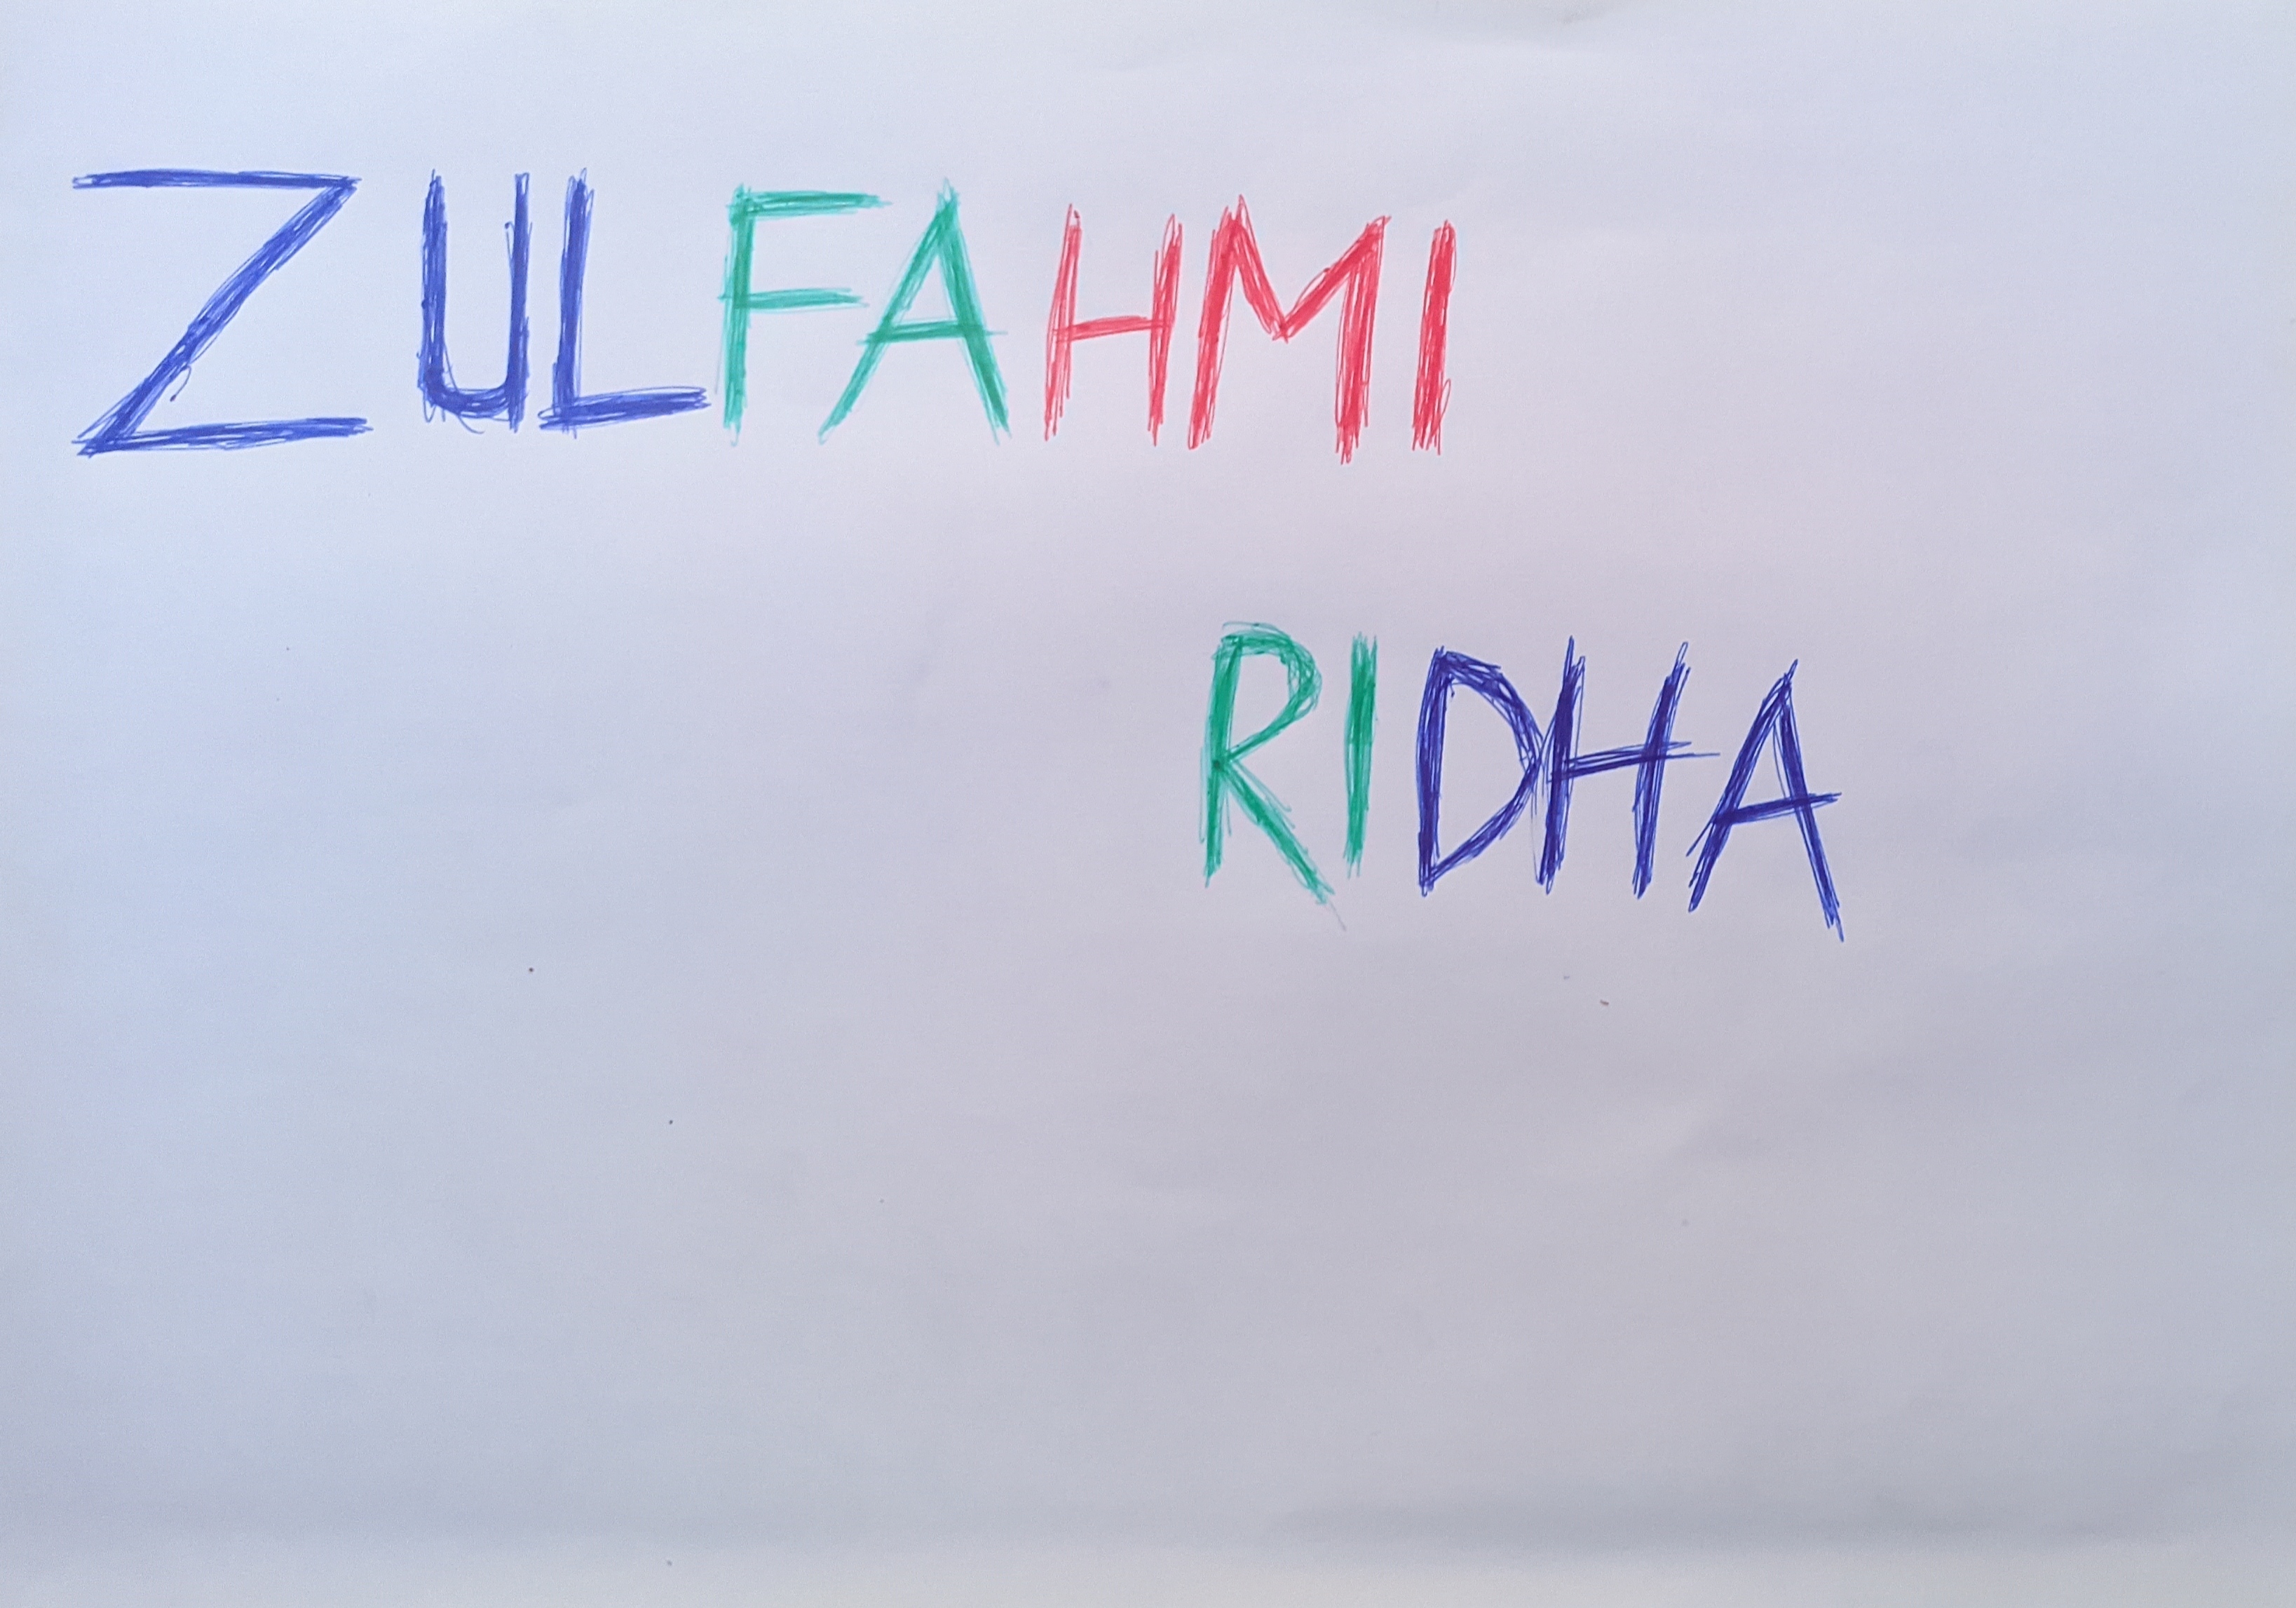 ZULFAHMI
RIDHA